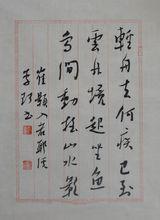 輕舟去何疾已到
雲林境起坐魚
鳥間動搖山水影
崔顥入若耶溪
李